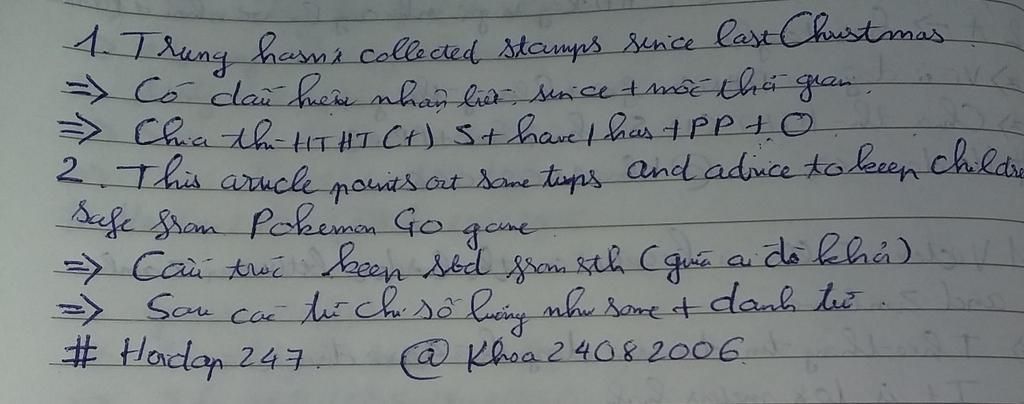 1. Trung hasn't collected stamps since last Christmas
=> Có dấu hiệu nhận biết: since + mốc thời gian.
=> Chia thì HTHT (+) S + have / has + PP + O
2. This article points out some tips and advice to keep children
safe from Pokemon Go game
=> Cấu trúc keep sbd from sth (giữ ai đó khỏi)
=> Sau các từ chỉ số lượng như some + danh từ.
# Hoidap 247. @ Khoa24082006